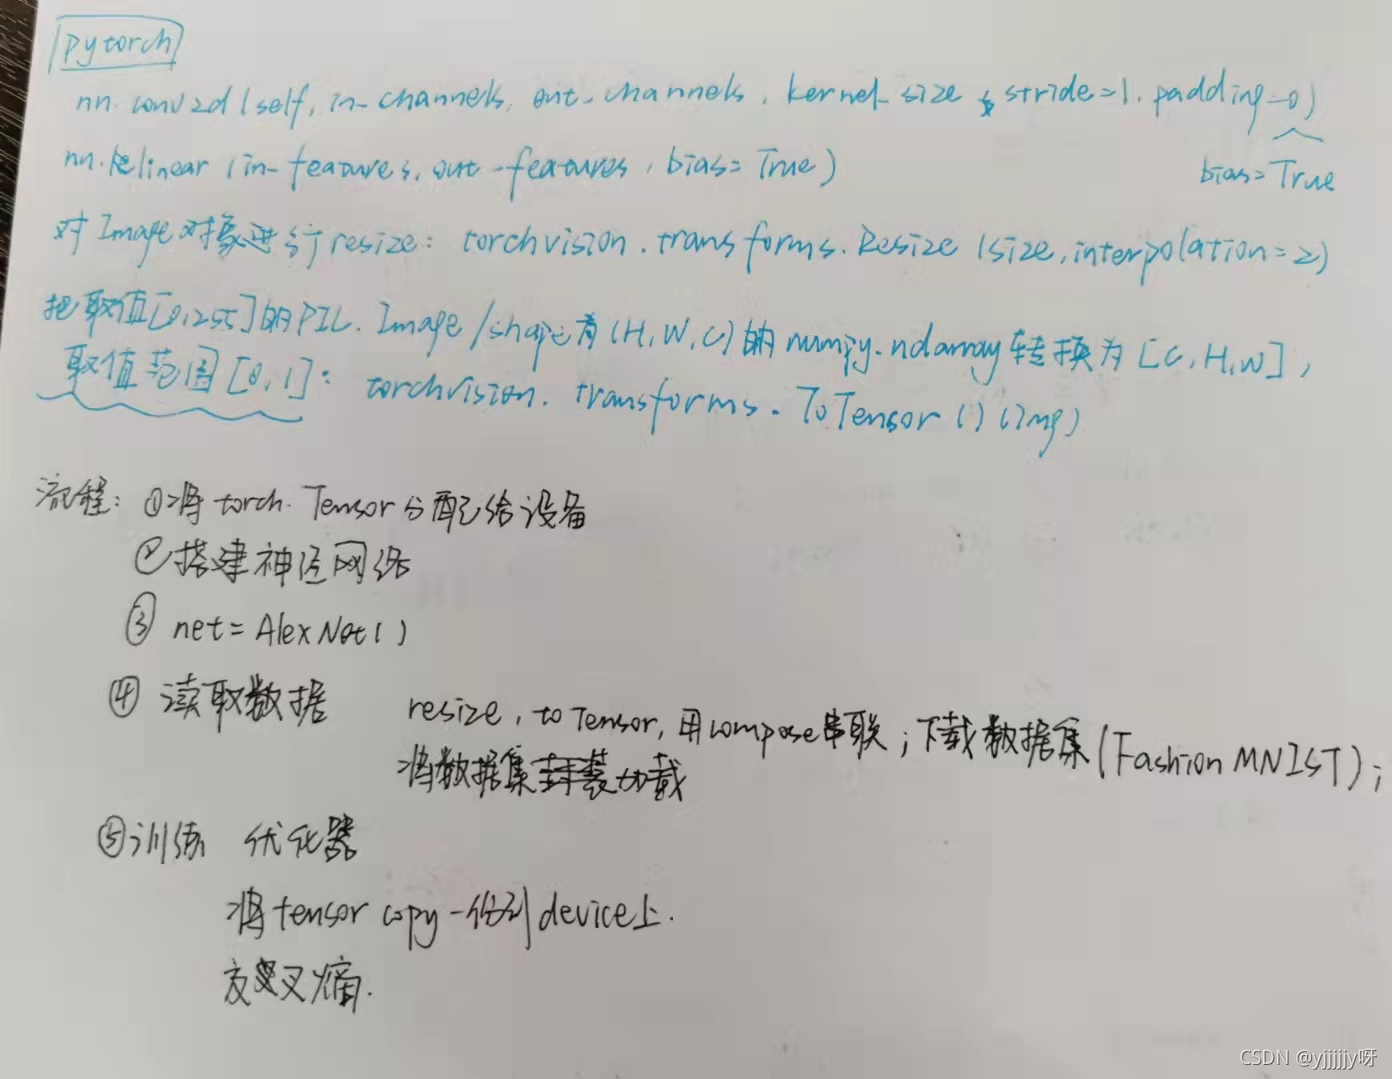 pytorch
nn.conv2d(self, in_channels, out_channels, kernel_size, stride=1, padding=0)
bias=True
nn.linear(in-features, out-features, bias=True)
对Image对象进行resize: torchvision.transforms.Resize(size, interpolation=2)
把取值[0,255]的PIL.Image/shape为(H,W,C)的numpy.ndarray转换为[C,H,W],
取值范围[0,1]: torchvision.transforms.ToTensor()(img)
流程: ①将torch.Tensor分配给设备
②搭建神经网络
③ net=AlexNet()
④ 读取数据 resize, toTensor, 用compose串联; 下载数据集(FashionMNIST);
将数据集封装加载
⑤训练 优化器
将tensor copy一份到device上.
交叉熵.
CSDN @yjjjjjy呀